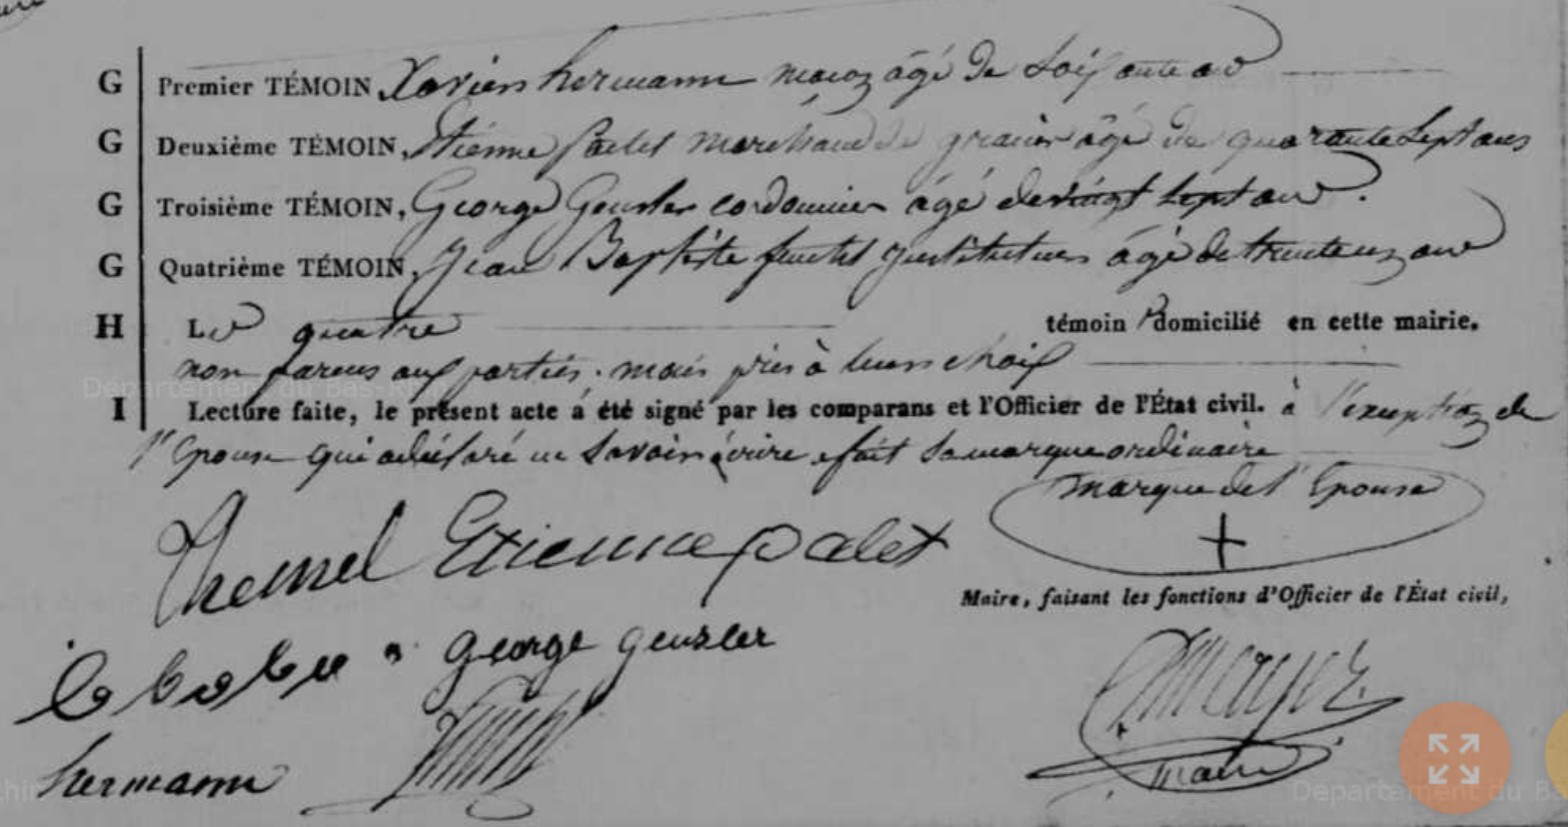 G Premier TÉMOIN, Xavier hermann maçon âgé de soixante ans
G Deuxième TÉMOIN, Etienne Palet marchand de grains âgé de quarante sept ans
G Troisième TÉMOIN, George Geusler cordonnier âgé de vingt sept ans.
G Quatrième TÉMOIN, Jean Baptiste instituteur âgé de ans
H Les quatre témoins domiciliés en cette mairie,
non parens aux parties, mais pris à leur choix
I Lecture faite, le présent acte a été signé par les comparans et l'Officier de l'État civil. à l'exception de
l'Epouse qui a déclaré ne savoir écrire et fait sa marque ordinaire
marque de l'Epouse
Etienne palet
+
Maire, faisant les fonctions d'Officier de l'État civil,
george geusler
Mayer
hermann
maire
Département du Bas-Rhin